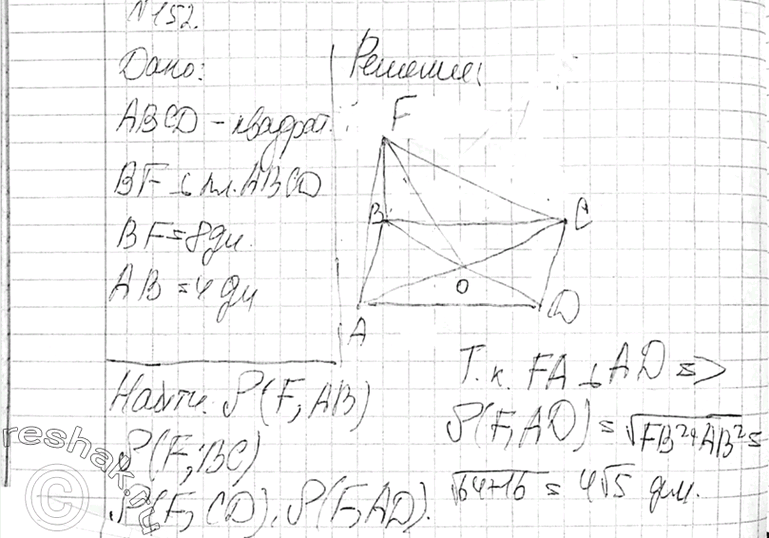 N 152.
Дано:
ABCD – квадрат.
BF ⊥ пл. ABCD
BF = 8 дм
AB = 4 дм
Найти: ρ(F, AB)
ρ(F, BC)
ρ(F, CD), ρ(F, AD).
Решение:
F
B
C
O
A
D
Т. к. FA ⊥ AD =>
ρ(F, AD) = √FB²+AB² =
√64+16 = 4√5 дм.
reshak.ru